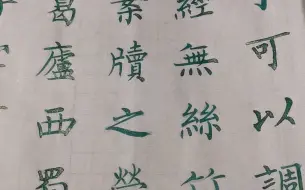 可以調
經無絲竹
案牘之勞
葛廬西蜀